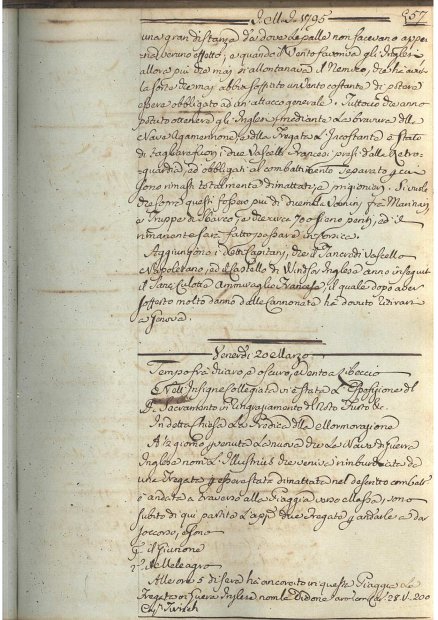 di Marzo 1795
57
una gran distanza da dove le palle non facevano appe
na veruno effetto, e quando il Vento favoriva gl'Inglesi
allora più che mai si allontanava il Nemico, che ha avuto
la sorte che mai abbia soffiato un Vento costante di potere
essere obbligato ad un attacco generale. Tuttavia che anno
potuto ottenere gl'Inglesi mediante la bravura della
Nave Agamennone, e della Fregata l'Incostante è stato
di tagliar fuori i due Vascelli Francesi presi dalla Retro-
guardia, ed obbligati al combattimento separato, e cu
sono rimasti totalmente dimattati, e prigionieri. Si vuole
che sopra questi fossero più di duemila Uomini fra Marinari,
e Truppe di Sbarco, e che circa 700 siano periti, ed il
rimanente sarà fatto passare in Corsica.
Aggiungono i detti Capitani, che il Tancredi Vascello
Napoletano, ed il Castello di Windsor Inglese anno inseguito
il Sans Culotte Ammiraglio Francese, il quale dopo aver
sofferto molto danno dalle Cannonate ha dovuto ritirarsi
a Genova.
Venerdì 20 Marzo
Tempo fra chiaro e oscuro, e Vento a Libeccio
Nell'Insigne Collegiata vi è stata l'Esposizione del
SS. Sacramento in ringraziamento del
In detta Chiesa la Predica della Mormorazione
A mezzo giorno è venuta la nuova che la Nave di Guerra
Inglese nom. l'Illustrius che veniva rimburchiata da
una Fregata, per essere stata dimattata nel descritto combatt.
è andata a traverso alla Spiaggia verso Massa, sono
subito di qui partite l'appie due Fregate per andarle a dar
soccorso, e sono
P. il
2. la Meleagro
Alle ore 5 di sera ha ancorato in queste Piagge la
Fregata di Guerra Inglese nom. la Didone
28 V. 200